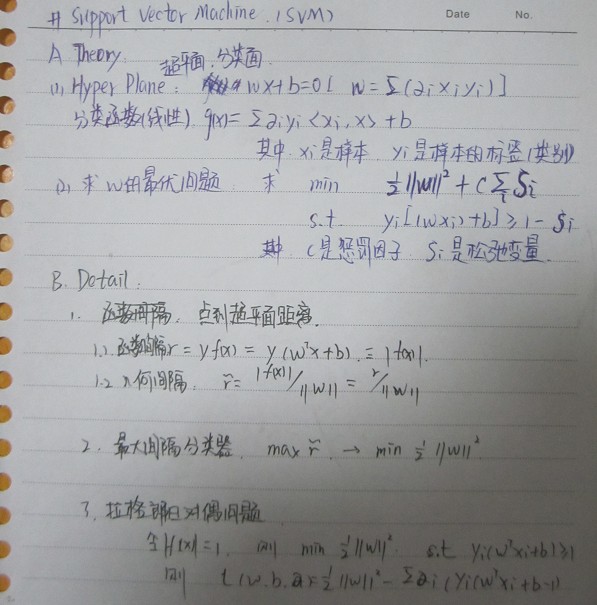 # Support Vector Machine. (SVM)
Date No.
A Theory. 超平面.分类面.
(1) Hyper Plane: wx+b=0 [ w = Σ(αi xi yi) ]
分类函数(线性) g(x)= Σαi yi <xi, x> + b
其中 xi是样本. yi是样本的标签(类别)
(2) 求 w的最优问题 求 min ½||w||² + C Σi ξi
s.t. yi[(wxi)+b] ≥ 1 - ξi
其中 C是惩罚因子. ξi是松弛变量.
B. Detail.
1. 函数间隔. 点到超平面距离.
1.1 函数间隔 r = y f(x) = y (wᵀx+b). = |f(x)|.
1.2 几何间隔. r̃ = |f(x)|/||w|| = r/||w||
2. 最大间隔分类器. max r̃. → min ½ ||w||².
3. 拉格朗日对偶问题
令H(x)=1. 则 min ½||w||². s.t yi(wᵀxi+b) ≥1
则 L(w.b.α)=½||w||² - Σαi(yi(wᵀxi+b-1)